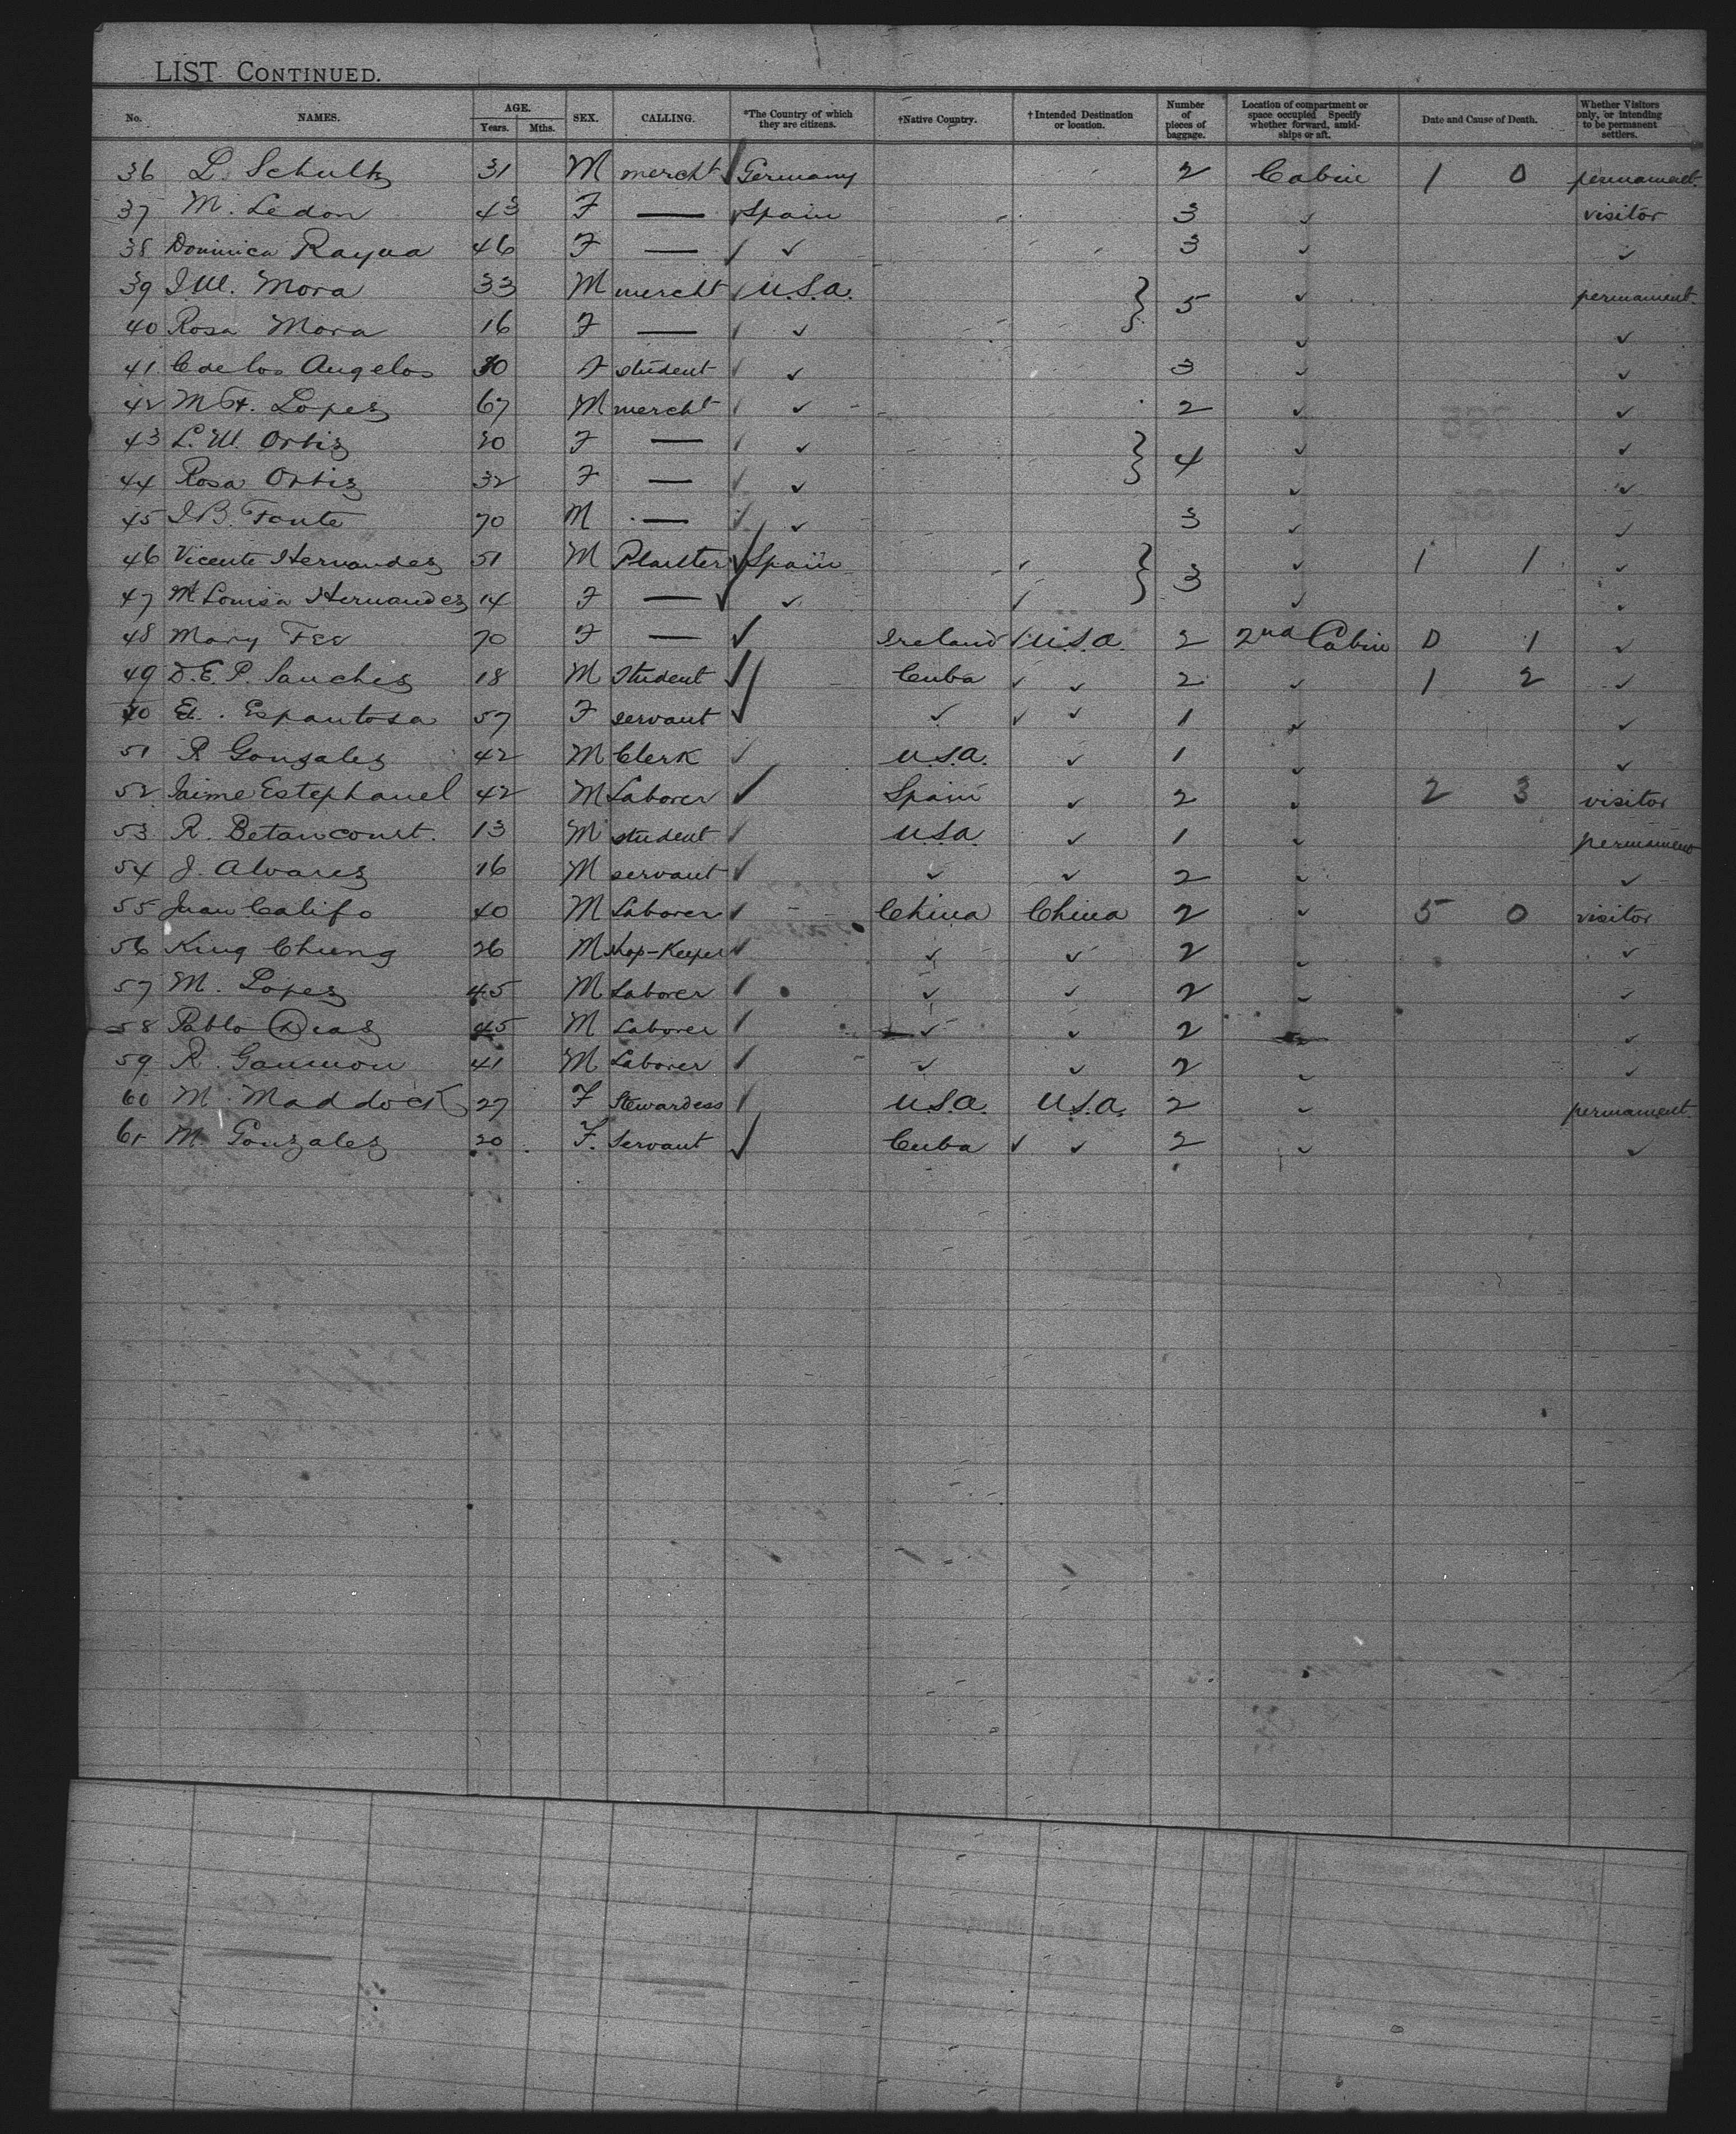 LIST CONTINUED.
No. NAMES. AGE. Years. Mths. SEX. CALLING. *The Country of which they are citizens. †Native Country. †Intended Destination or location. Number of pieces of baggage. Location of compartment or space occupied Specify whether forward, amidships or aft. Date and Cause of Death. Whether Visitors only, or intending to be permanent settlers.
36 L. Schultz 31 M mercht Germany 2 Cabin 1 0 permanent
37 M. Ledon 43 F — Spain 3 ✓ visitor
38 Dominica Rayna 46 F — ✓ 3 ✓ ✓
39 Mora 33 M mercht U.S.a. } 5 ✓ permanent
40 Rosa Mora 16 F — ✓ ✓ ✓
41 C de los Angelos F student ✓ 3 ✓ ✓
42 Lopez 67 M mercht ✓ 2 ✓ ✓
43 Ortiz 20 F — ✓ } 4 ✓ ✓
44 Rosa Ortiz 32 F — ✓ ✓ ✓
45 Fonte 70 M — ✓ 3 ✓ ✓
46 Vicente Hernandez 51 M Planter Spain } 3 ✓ 1 1 ✓
47 M Louisa Hernandez 14 F — ✓ ✓ ✓
48 Mary Fee 70 F — ✓ Ireland U.S.a. 2 2nd Cabin 0 1 ✓
49 D.E.P. Sanchez 18 M Student ✓ Cuba ✓ ✓ 2 ✓ 1 2 ✓
50 Espantosa 57 F servant ✓ ✓ ✓ ✓ 1 ✓ ✓
51 R Gonzales 42 M Clerk ✓ U.S.a. ✓ 1 ✓ ✓
52 Jaime Estephanel 42 M Laborer ✓ Spain ✓ 2 ✓ 2 3 visitor
53 R. Betancourt. 13 M student ✓ U.S.a ✓ 1 ✓ permanent
54 J. Alvarez 16 M servant ✓ ✓ ✓ 2 ✓ ✓
55 Juan Califo 40 M Laborer China China 2 ✓ 5 0 visitor
56 King Chung 26 M shop-Keeper ✓ ✓ 2 ✓ ✓
57 M. Lopez 45 M Laborer ✓ ✓ 2 ✓ ✓
58 Pablo Diaz 45 M Laborer ✓ ✓ 2 ✓ ✓
59 R. Gammon 41 M Laborer ✓ ✓ 2 ✓ ✓
60 M. Maddock 27 F Stewardess U.S.a. U.S.a. 2 ✓ permanent
61 M. Gonzales 20 F. Servant ✓ Cuba ✓ ✓ 2 ✓ ✓